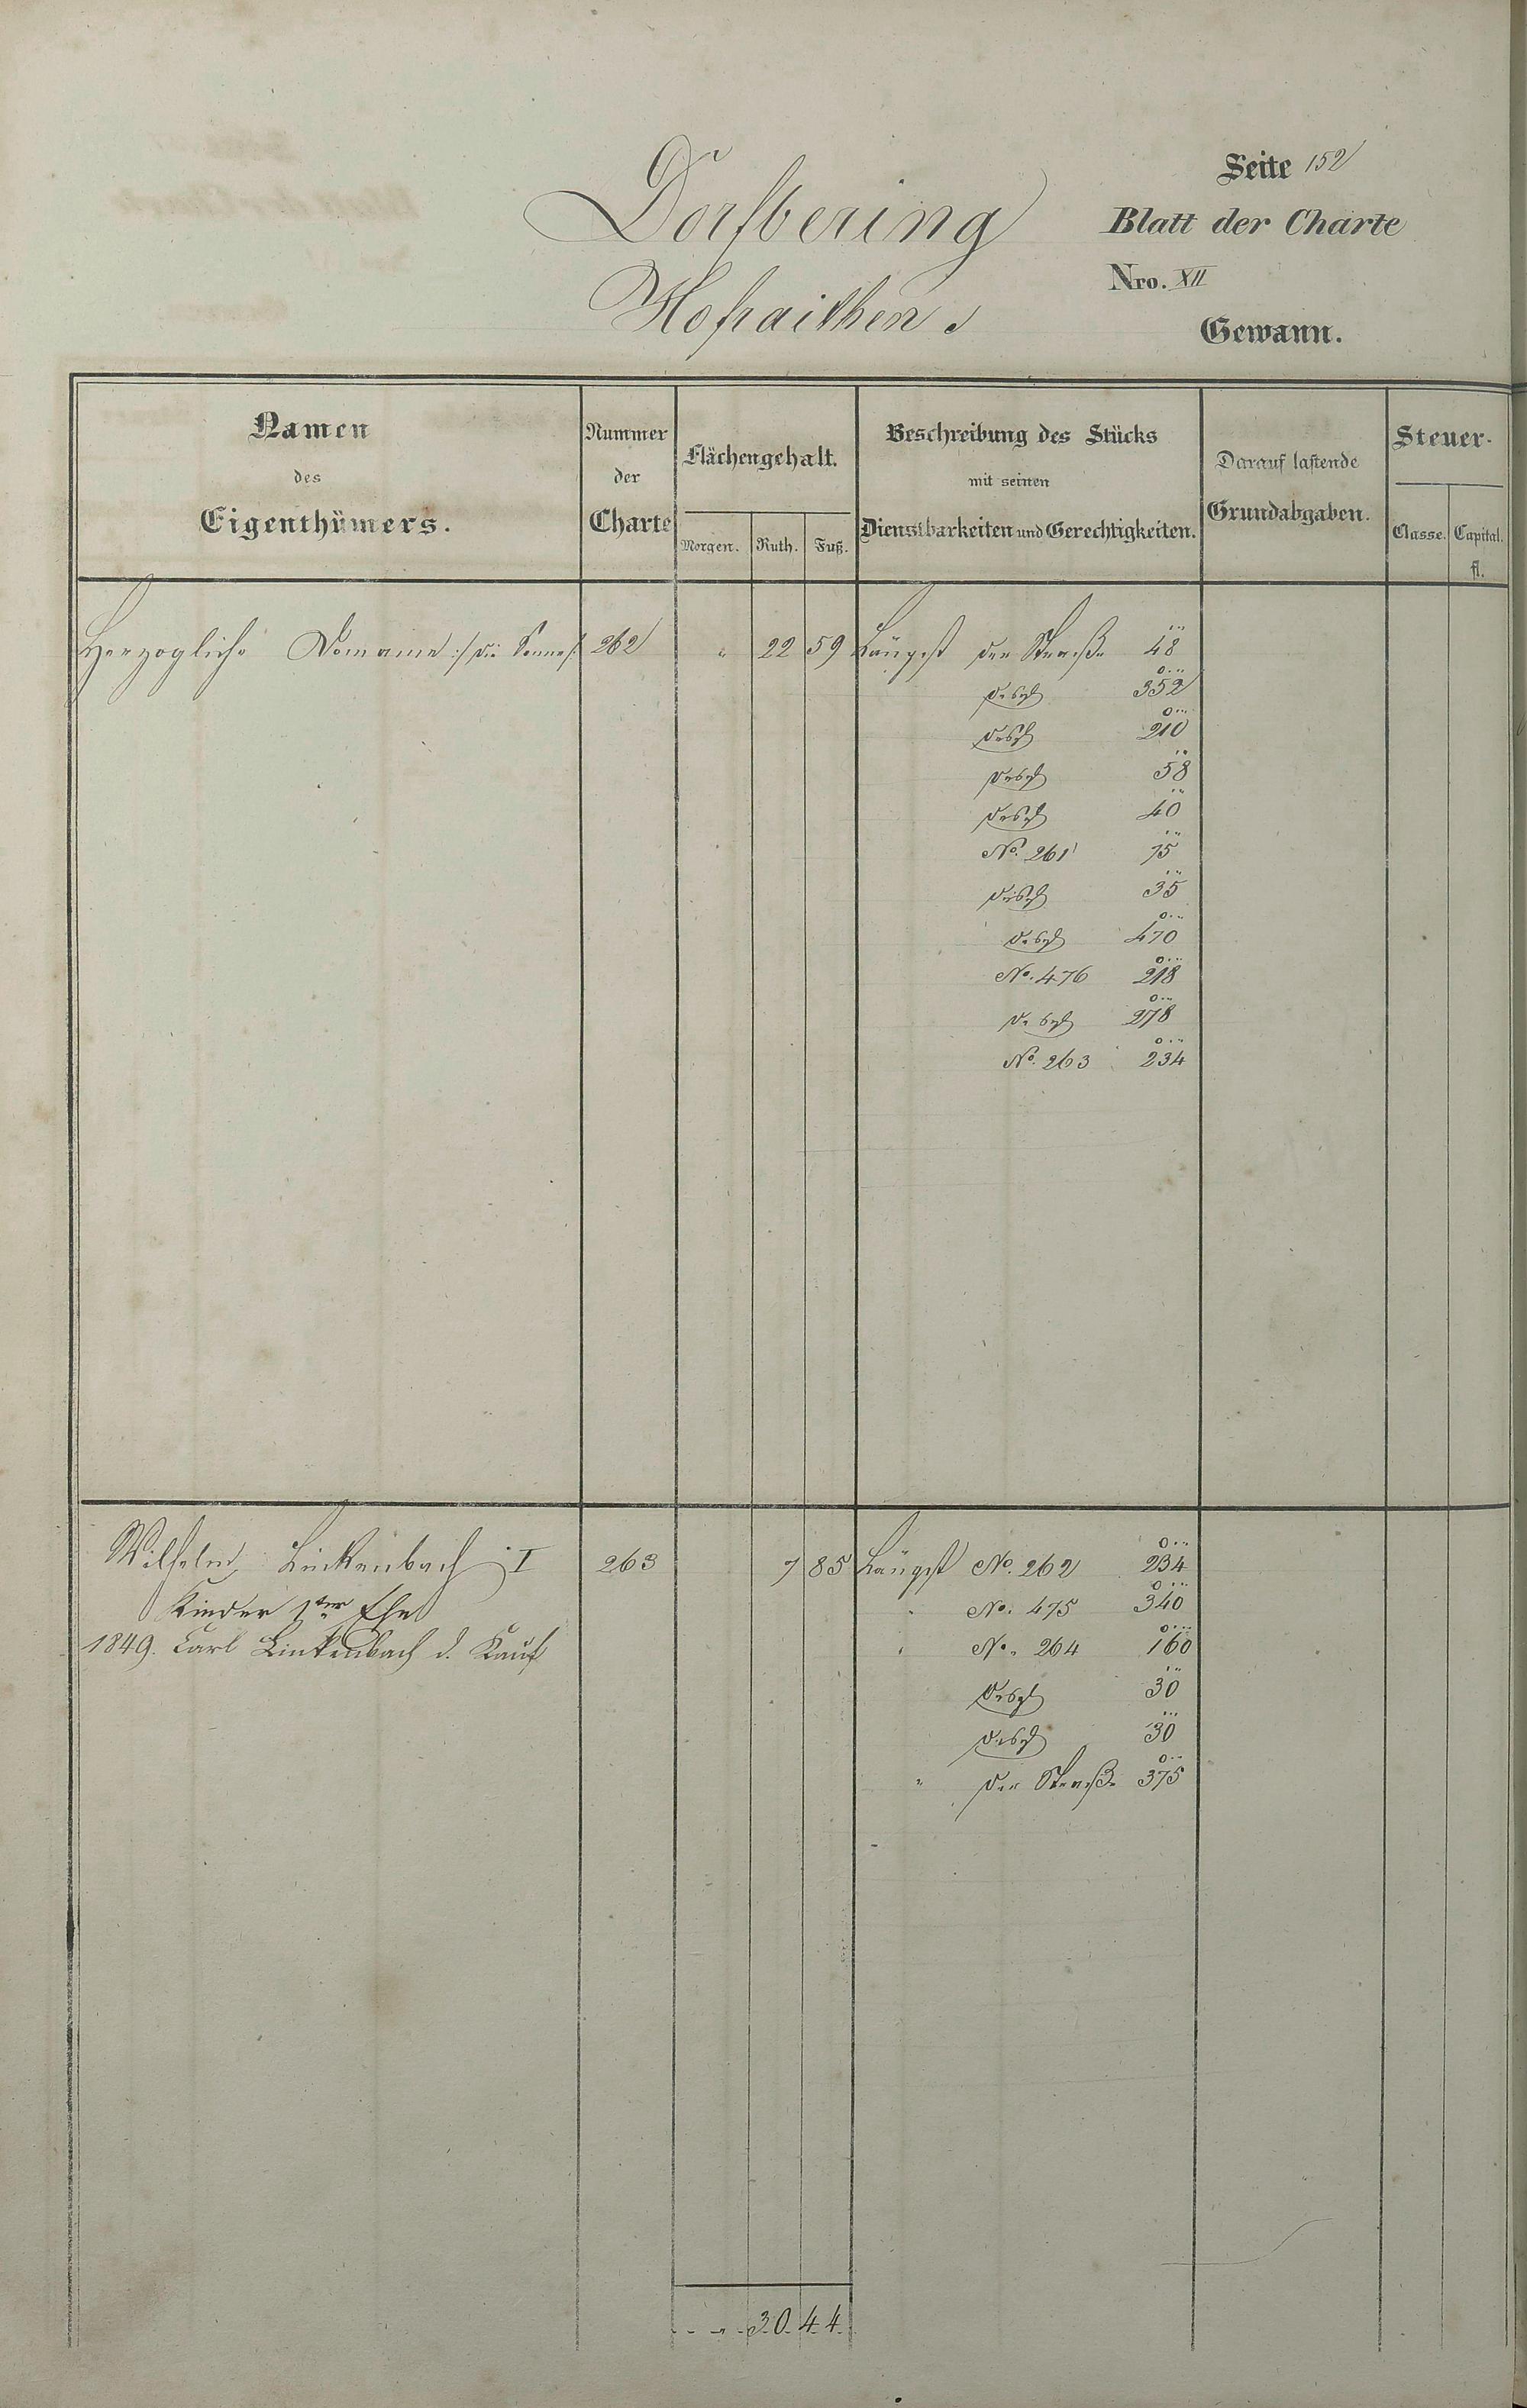 Seite 152
Dorfbering
Blatt der Charte
Nro. XII
Hofraithen
Gewann.
Namen des Eigenthümers.
Nummer der Charte
Flächengehalt.
Morgen. Ruth. Fuß.
Beschreibung des Stücks mit seinen Dienstbarkeiten und Gerechtigkeiten.
Darauf lastende Grundabgaben.
Steuer-
Classe. Capital. fl.
Herzogliche Domaine :/ die Sonne /: 262 " 22 59 Längst der Straße 48
desgl 352
desgl 210
desgl 58
desgl 40
No. 261 75
desgl 35
desgl 470
No. 476 218
desgl 278
No. 263 234
Wilhelm Linkenbach I 263 7 85 Längst No. 262 234
Kinder 1ter Ehe " No. 475 340
1849. Carl Linkenbach d. Kauf " No. 264 160
desgl 30
desgl 30
" der Straße 375
" 30 44